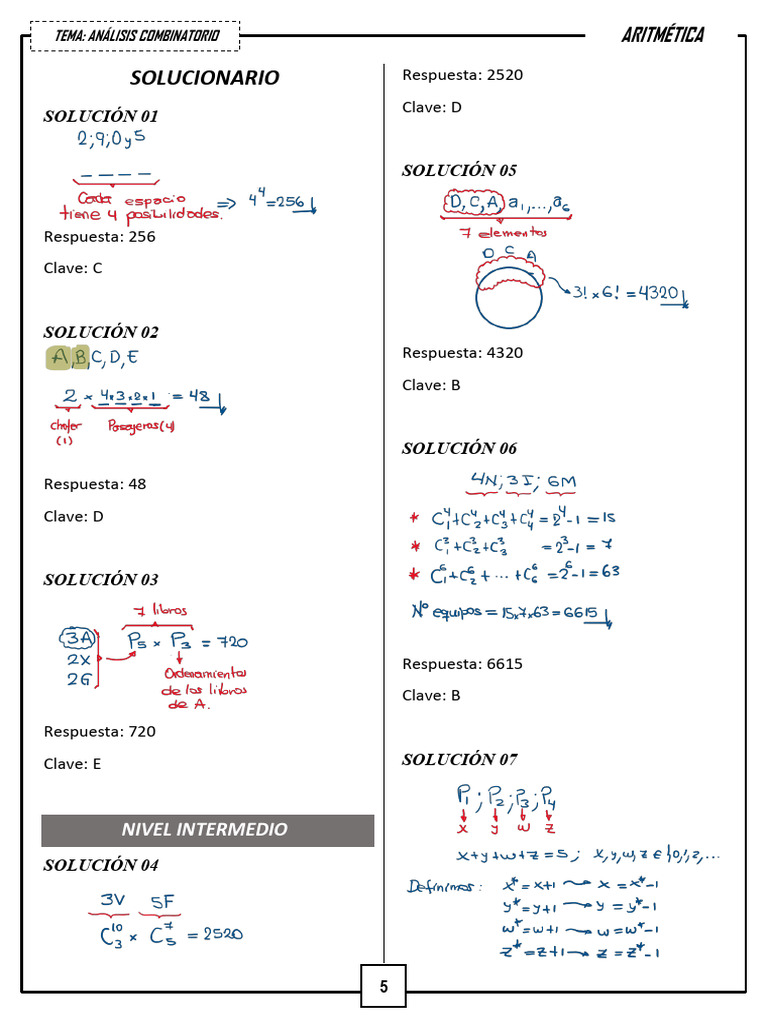 TEMA: ANÁLISIS COMBINATORIO
ARITMÉTICA
SOLUCIONARIO
SOLUCIÓN 01
2;9;0y5
_ _ _ _
Cada espacio
tiene 4 posibilidades.
⇒ 4⁴=256
Respuesta: 256
Clave: C
SOLUCIÓN 02
A,B,C,D,E
2 × 4×3×2×1 = 48
chofer
(1)
Pasajeros(4)
Respuesta: 48
Clave: D
SOLUCIÓN 03
7 libros
3A
2X
2G
P₅ × P₃ = 720
Ordenamientos
de los libros
de A.
Respuesta: 720
Clave: E
NIVEL INTERMEDIO
SOLUCIÓN 04
3V 5F
C¹⁰₃ × C⁷₅ = 2520
Respuesta: 2520
Clave: D
SOLUCIÓN 05
D,C,A,a₁,...,a₆
7 elementos
D C A
3!×6! = 4320
Respuesta: 4320
Clave: B
SOLUCIÓN 06
4N;3I;6M
* C⁴₁+C⁴₂+C⁴₃+C⁴₄=2⁴-1=15
* C³₁+C³₂+C³₃ =2³-1=7
* C⁶₁+C⁶₂+...+C⁶₆=2⁶-1=63
Nº equipos=15×7×63=6615
Respuesta: 6615
Clave: B
SOLUCIÓN 07
P₁;P₂;P₃;P₄
x y w z
x+y+w+z=5; x,y,w,z∈{0,1,2,...
Definimos: x*=x+1→x=x*-1
y*=y+1→y=y*-1
w*=w+1→w=w*-1
z*=z+1→z=z*-1
5